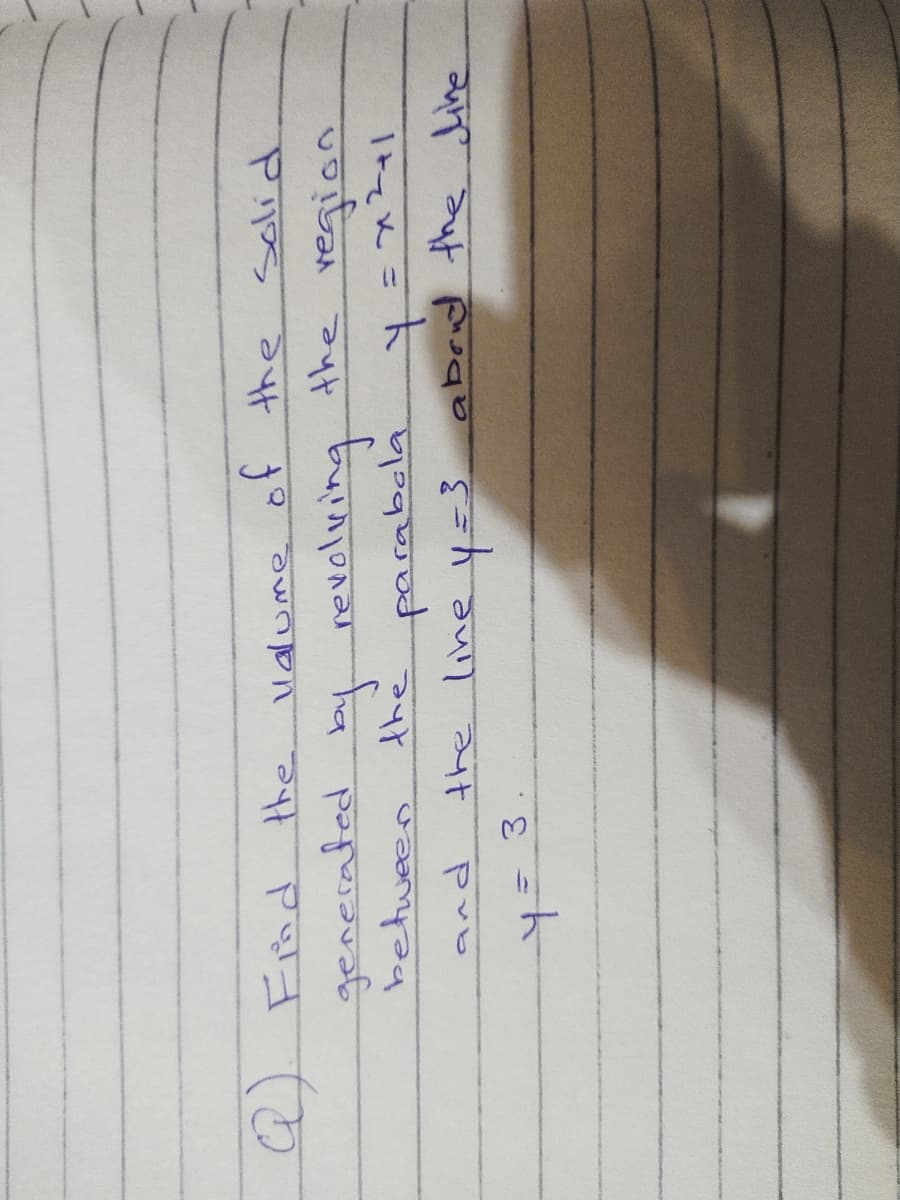 Q) Find the volume of the solid
generated by revolving the region
between the parabola y = x²+1
and the line y=3 about the line
y = 3.